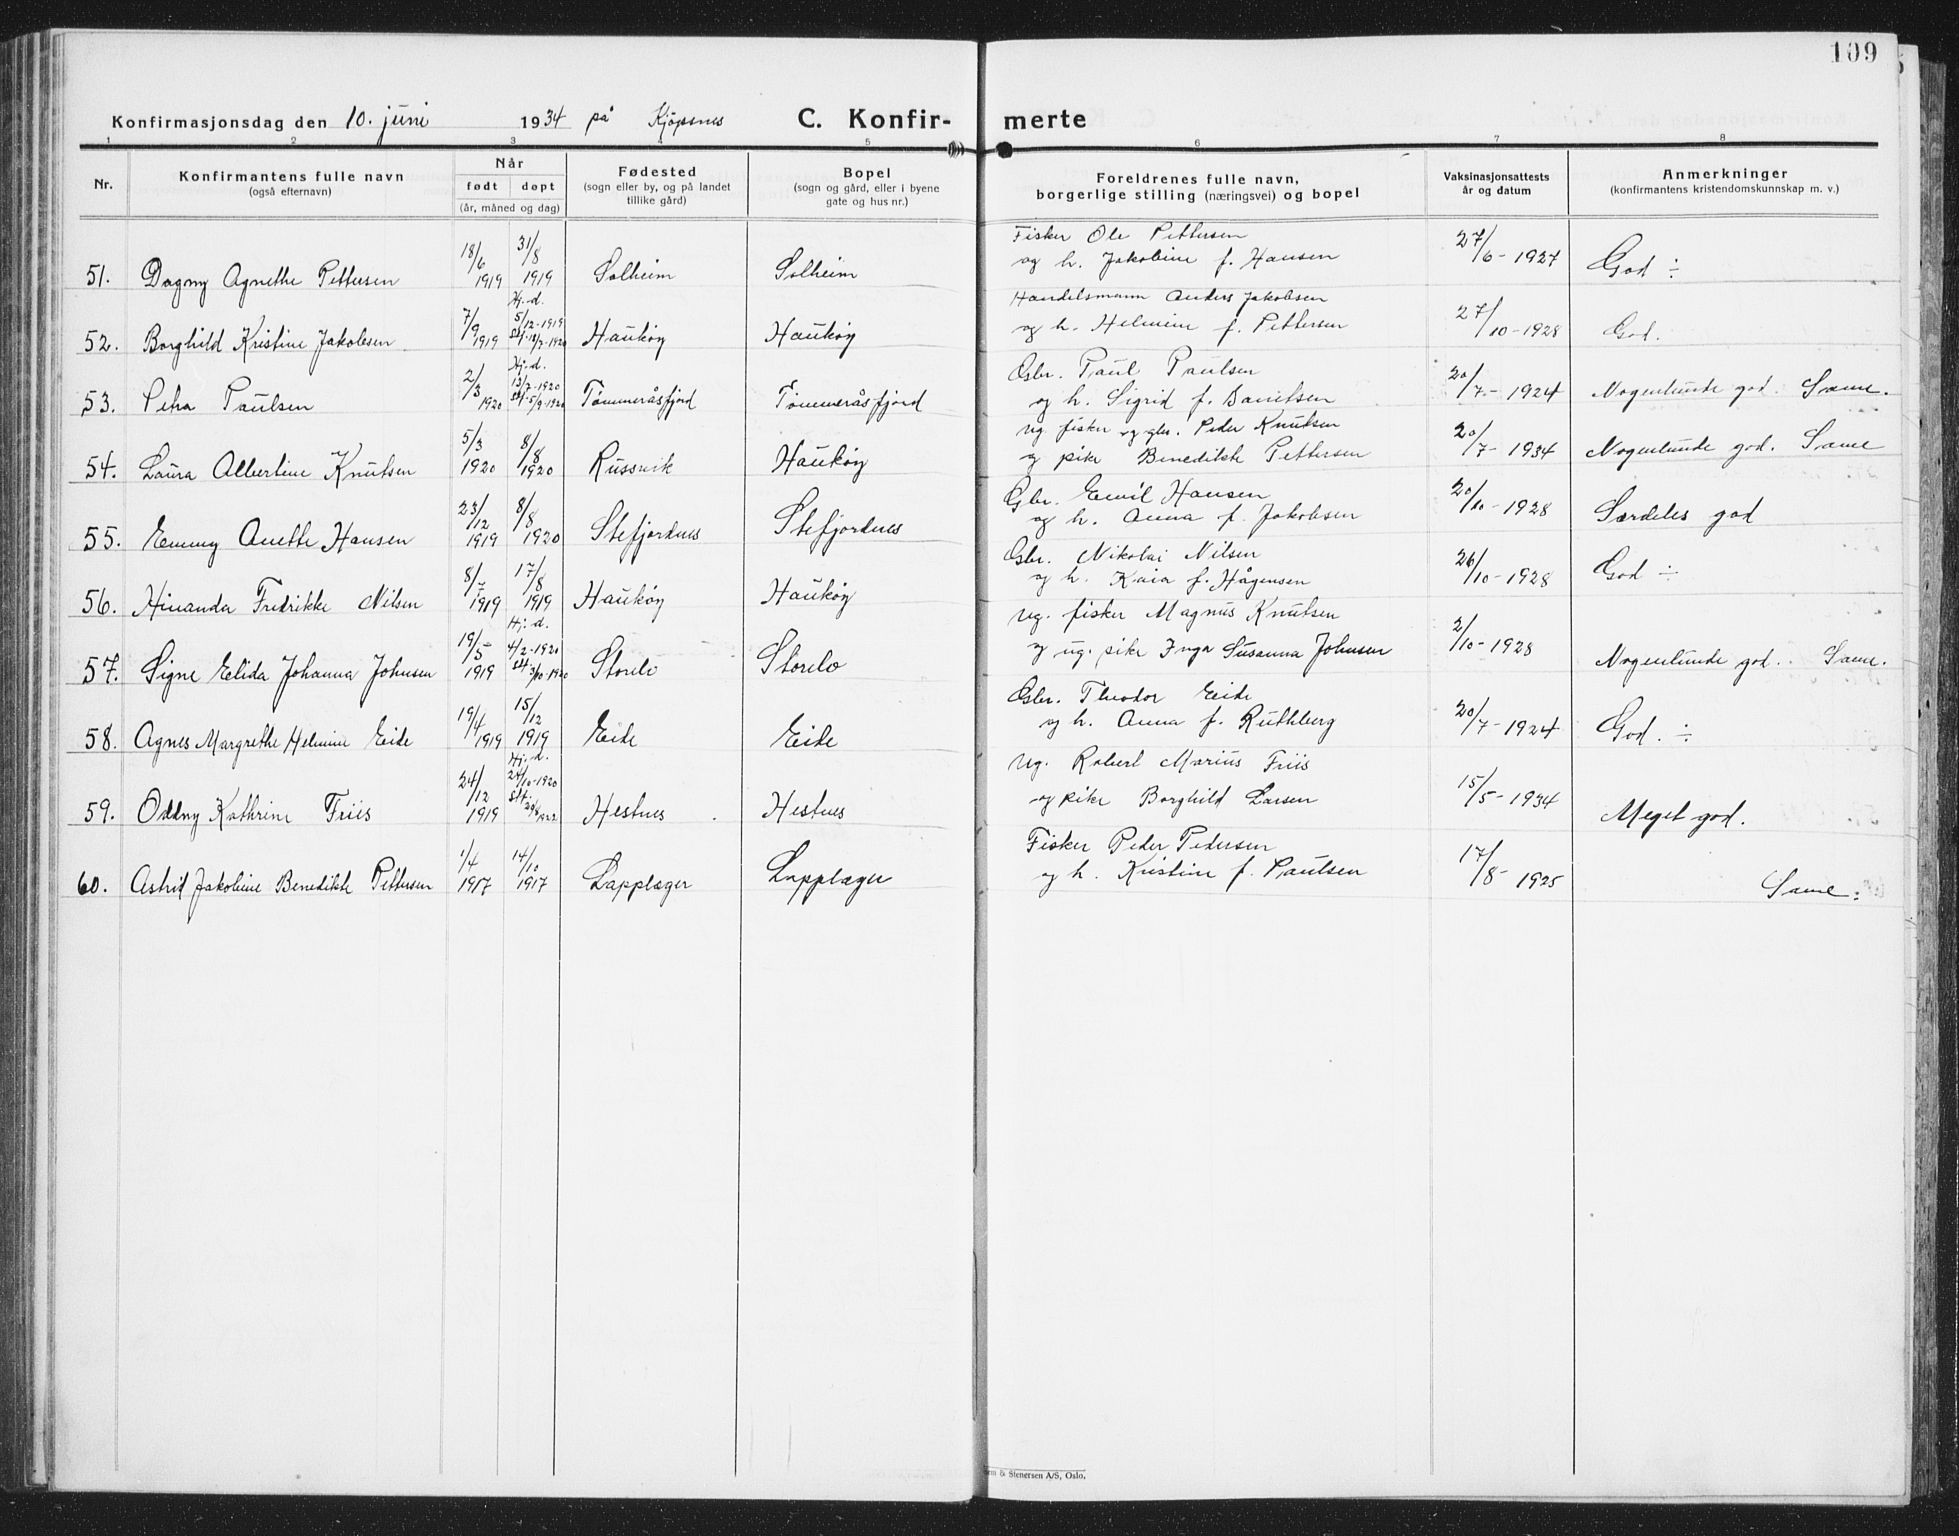 109
Konfirmasjonsdag den 10. juni 1934 på Kjöpsnes C. Konfir- merte
1 2 3 4 5 6 7 8
Nr.
Konfirmantens fulle navn
(også efternavn)
Når
født døpt
(år, måned og dag)
Fødested
(sogn eller by, og på landet
tillike gård)
Bopel
(sogn og gård, eller i byene
gate og hus nr.)
Foreldrenes fulle navn,
borgerlige stilling (næringsvei) og bopel
Vaksinasjonsattests
år og datum
Anmerkninger
(konfirmantens kristendomskunnskap m. v.)
Fisker Ole Pettersen
51. Dagny Agnethe Pettersen 18/6 1919 31/8 1919 Solheim Solheim og h. Jakobine f. Hansen 27/6-1927 God ÷
Handelsmann Anders Jakobsen
52. Borghild Kristine Jakobsen 7/9 1919 Hj.d. 5/12-1919 Haukøy Haukøy og h. Helmine f. Pettersen 27/10-1928 God.
Gbr. Paul Paulsen
53. Petra Paulsen 2/3 1920 Hj.d. 13/7-1920 st. 5/9-1920 Tømmeråsfjord Tømmeråsfjord og h. Sigrid f. Danielsen 20/7-1924 Nogenlunde god. Same.
Ug. fisker og gbr. Peder Knutsen
54. Laura Albertine Knutsen 5/3 1920 8/8 1920 Russvik Haukøy og pike Benedikte Pettersen 20/7-1934 Nogenlunde god. Same
Gbr. Emil Hansen
55. Emmy Anethe Hansen 23/12 1919 8/8 1920 Stefjordnes Stefjordnes og h. Anna f. Jakobsen 20/10-1928 Særdeles god
Gbr. Nikolai Nilsen
56. Hinanda Fredrikke Nilsen 8/7 1919 17/8 1919 Haukøy Haukøy og h. Kaia f. Hågensen 26/10-1928 God ÷
Ug. fisker Magnus Knutsen
57. Signe Elida Johanna Johnsen 19/5 1919 Hj.d. 4/2-1920 st. 3/10-1920 Storelv Storelv og ug. pike Inga Susanna Johnsen 2/10-1928 Nogenlunde god. Same.
Gbr. Theodor Eide
58. Agnes Margrethe Helmine Eide 19/4 1919 15/12 1919 Eide Eide og h. Anna f. Ruthberg 20/7-1924 God. ÷
Ug. Robert Marius Friis
59. Oddny Kathrine Friis 24/12 1919 Hj.d. 24/10-1920 Hestnes Hestnes og pike Borghild Larsen 15/5-1934 Meget god.
Fisker Peder Pedersen
60. Astrid Jakobine Benedikte Pettersen 1/4 1917 14/10 1917 Lapplæger Lapplæger og h. Kristine f. Paulsen 17/8-1925 Same.
& Stenersen A/S, Oslo.